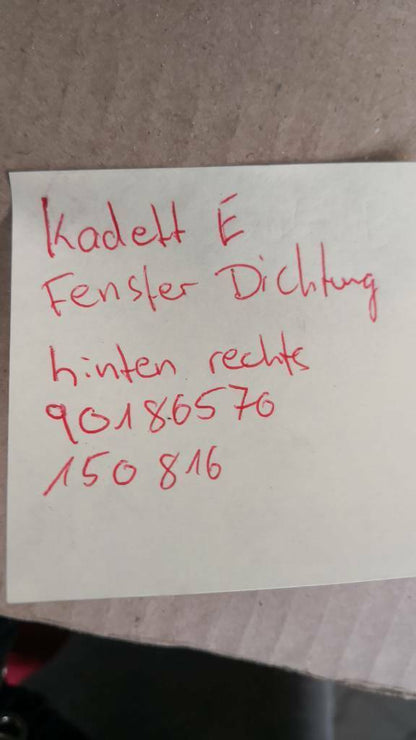 Kadett E
Fenster Dichtung
hinten rechts
90186570
150 816